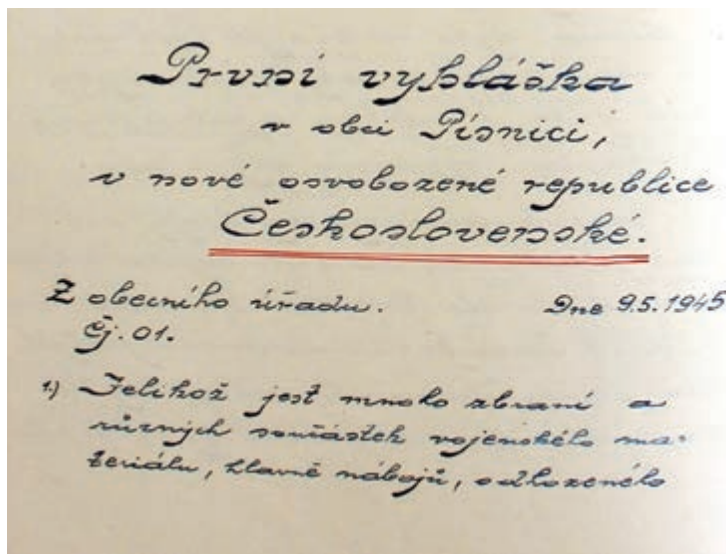 První vyhláška
v obci Písnici,
v nové osvobozené republice
Československé.
Z obecního úřadu. Dne 9.5.1945
Čj. 01.
1.) Jelikož jest mnoho zbraní a
různých součástek vojenského ma-
teriálu, hlavně nábojů, odhozeného